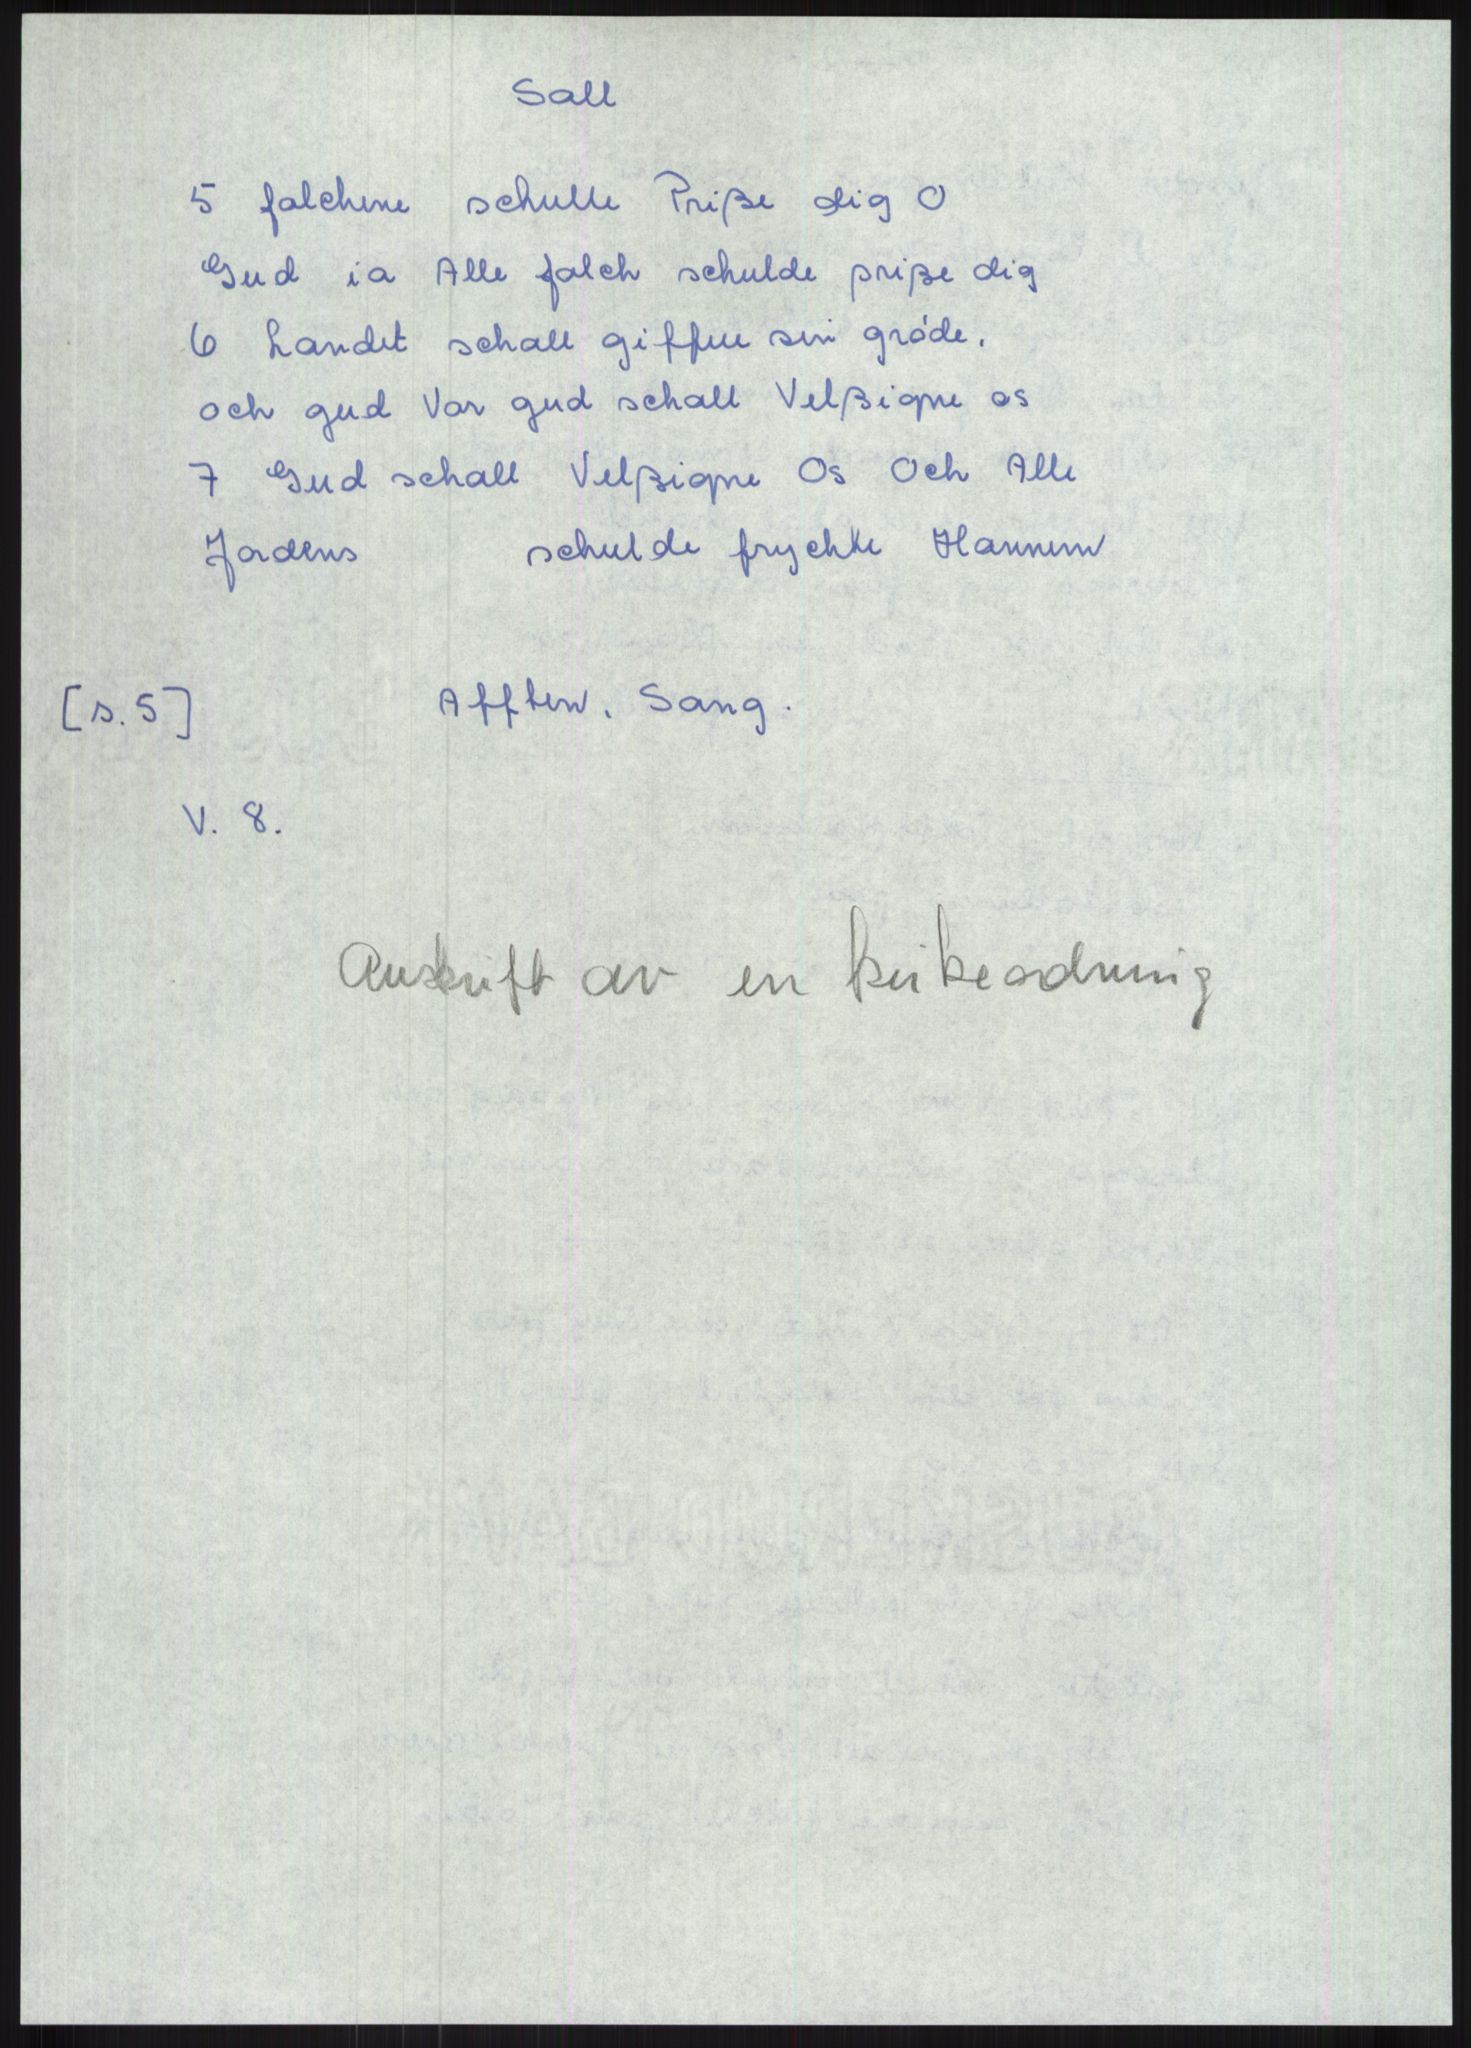 Sall
5 falchene schulle Priße dig O
Gud ia Alle falch schulde priße dig
6 Landet schall giffue sin grøde,
och gud Vor gud schall Velßigne os
7 Gud schall Velßigne Os Och Alle
Jordens schulde frychte Hannem
[s. 5] Afften. Sang.
V. 8.
Avskrift av en kirkeordning